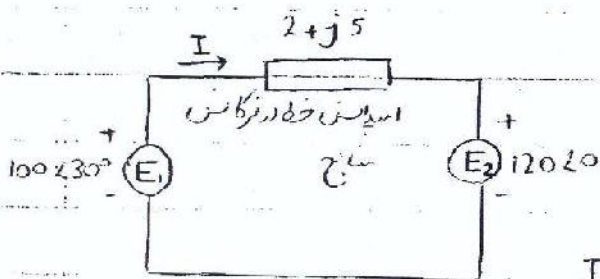 2 + j 5
I
امپدانس خط در فرکانس
+
+
100∠30°
E₁
نتایج
E₂
120∠0
-
-
I